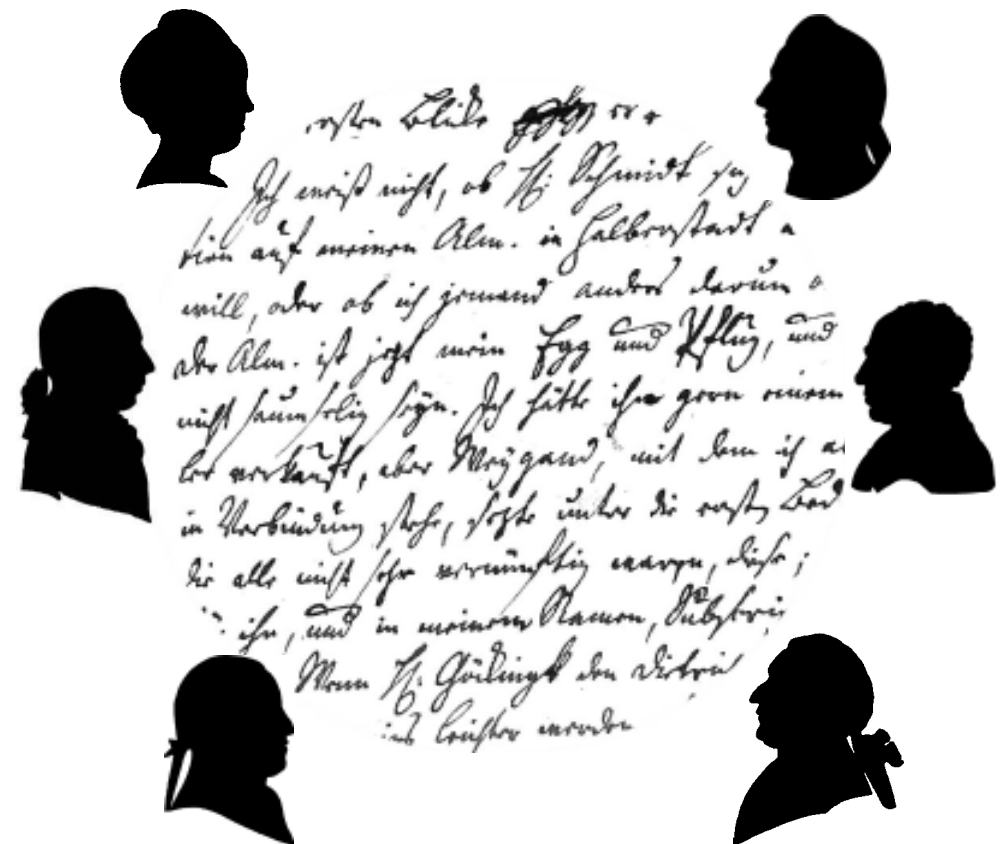 ersten Blicke
Ich weiß nicht, ob H. Schmidt
tion auf meinen Alm. in Halberstadt
will, oder ob ich jemand anders darum
Der Alm. ist jetzt mein Egg und Pflug, und
nicht saumselig seyn. Ich hätte ihn gern einem
ler verkauft, aber Weygand, mit dem ich
in Verbindung stehe, setzte unter die ersten Bed
die alle nicht sehr vernünftig waren, diese;
ihn, und in meinem Namen, Subskri
Wenn H. Göckingk den
leichter werden